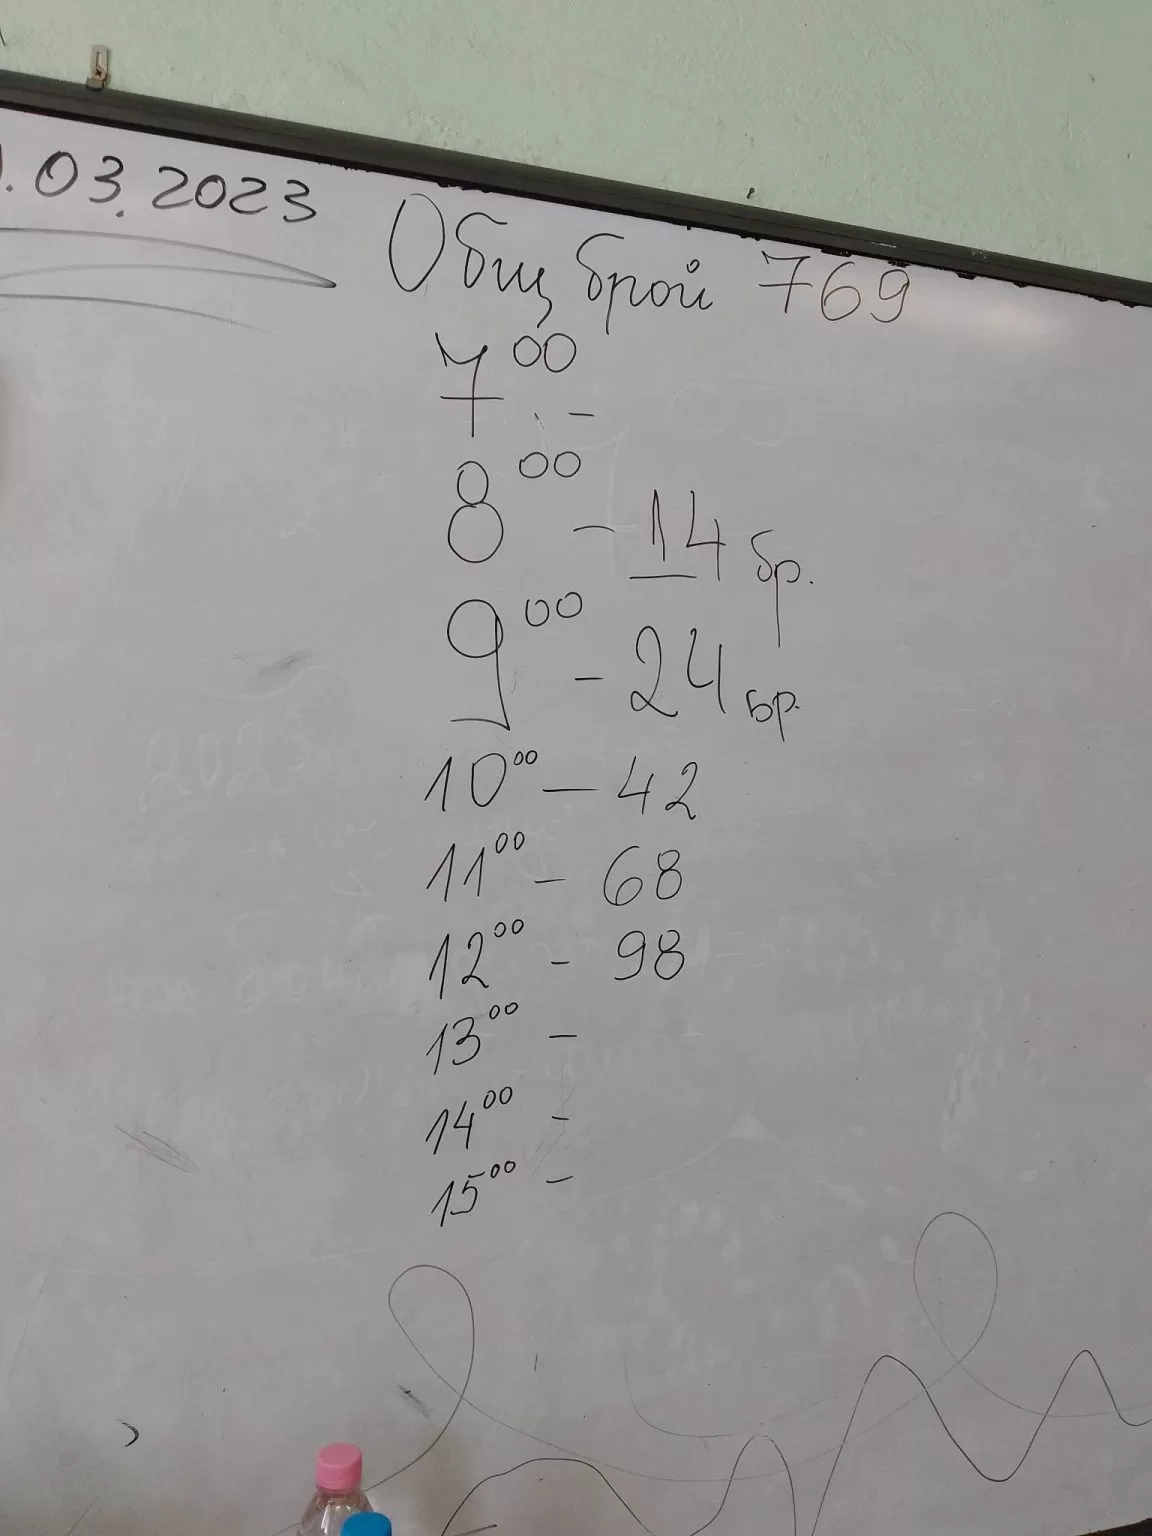 .03.2023
Общ брой 769
7⁰⁰ -
8⁰⁰ - 14 бр.
9⁰⁰ - 24 бр.
10⁰⁰ - 42
11⁰⁰ - 68
12⁰⁰ - 98
13⁰⁰ -
14⁰⁰ -
15⁰⁰ -